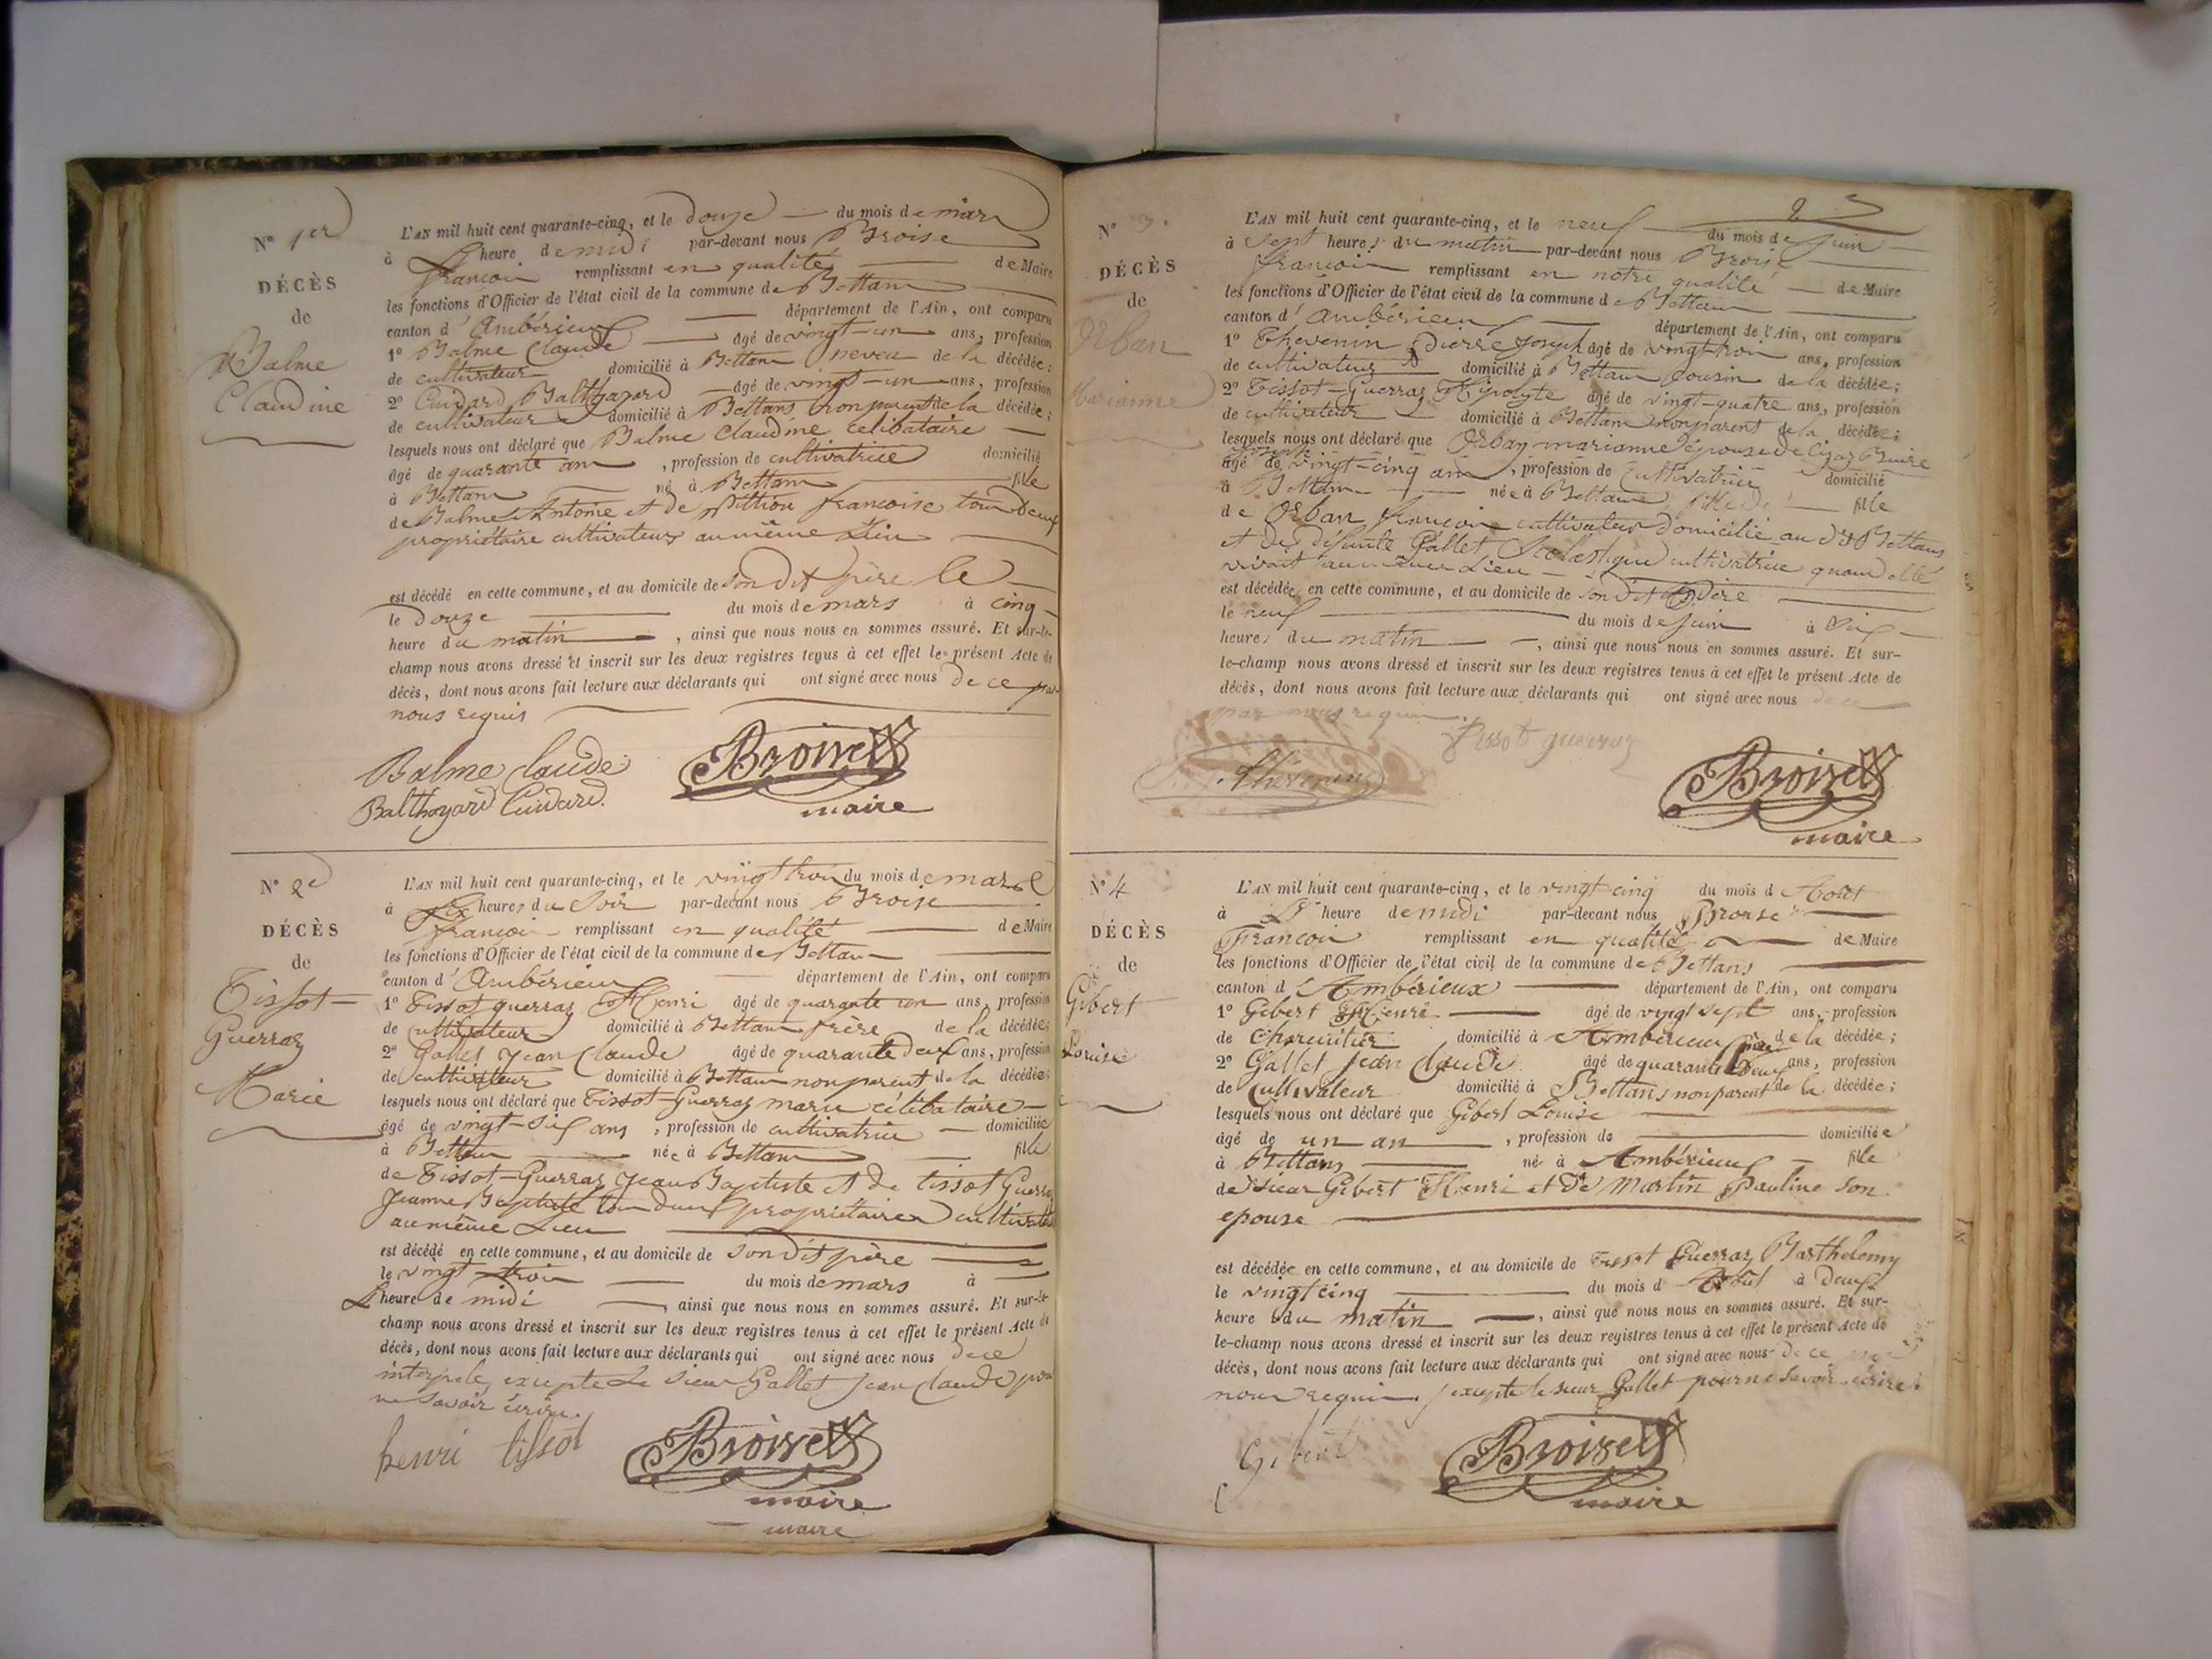 N° 1er
DÉCÈS
de
Balme
Claudine
L'AN mil huit cent quarante-cinq, et le douze du mois de mars
à L' heure de midi par-devant nous Broise
françois remplissant en qualité de Maire
les fonctions d'Officier de l'état civil de la commune de Bettans
canton d' Ambérieux département de l'Ain, ont comparu
1° Balme Claude âgé de vingt-un ans, profession
de cultivateur domicilié à Bettans neveu de la décédée;
2° Cuidard Balthazard âgé de vingt-un ans, profession
de cultivateur domicilié à Bettans non parent de la décédée;
lesquels nous ont déclaré que Balme Claudine celibataire
âgé de quarante ans, profession de cultivatrice domicilié
à Bettans né à Bettans fille
de Balme Antoine et de pittion françoise tous deux
propriétaire cultivateurs au même Lieu
est décédé en cette commune, et au domicile de son dit père le
le Douze du mois de mars à cinq
heure du matin, ainsi que nous nous en sommes assuré. Et sur-le-
champ nous avons dressé et inscrit sur les deux registres tenus à cet effet le présent Acte de
décès, dont nous avons fait lecture aux déclarants qui ont signé avec nous de ce par
nous requis
Balme Claude
Balthazard Cuidard
Broise
maire
N° 2e
DÉCÈS
de
Tissot-
Guerraz
Marie
L'AN mil huit cent quarante-cinq, et le vingt trois du mois de mars
à six heures du Soir par-devant nous Broise
françois remplissant en qualité de Maire
les fonctions d'Officier de l'état civil de la commune de Bettans
canton d' Ambérieux département de l'Ain, ont comparu
1° Tissot guerraz Henri âgé de quarante un ans, profession
de cultivateur domicilié à Bettans frère de la décédée;
2° Gallet Jean Claude âgé de quarante deux ans, profession
de cultivateur domicilié à Bettans non parent de la décédée;
lesquels nous ont déclaré que Tissot-Guerraz marie célibataire
âgé de vingt-six ans, profession de cultivatrice domiciliée
à Bettans née à Bettans fille
de Tissot-Guerraz Jean Baptiste et de tissot Guerraz
Jeanne Baptiste tous deux propriétaires cultivateurs
au même Lieu
est décédé en cette commune, et au domicile de son dit père
le vingt-trois du mois de mars à
L' heure de midi, ainsi que nous nous en sommes assuré. Et sur-le-
champ nous avons dressé et inscrit sur les deux registres tenus à cet effet le présent Acte de
décès, dont nous avons fait lecture aux déclarants qui ont signé avec nous de ce
interpele, excepté Le sieur Gallet Jean Claude pour
ne savoir écrire.
henri tissot
Broise
maire
maire
2
N° 3.
DÉCÈS
de
Orban
Marianne
L'AN mil huit cent quarante-cinq, et le neuf du mois de juin
à sept heures du matin par-devant nous Broise
françois remplissant en notre qualité de Maire
les fonctions d'Officier de l'état civil de la commune de Bettans
canton d' ambérieux département de l'Ain, ont comparu
1° Thevenin Pierre Joseph âgé de vingt-trois ans, profession
de cultivateur domicilié à Bettans cousin de la décédée;
2° Tissot-Guerraz Hipolyte âgé de vingt-quatre ans, profession
de cultivateur domicilié à Bettans non parent de la décédée;
lesquels nous ont déclaré que Orban marianne épouse de
joseph
âgé de vingt-cinq ans, profession de Cultivatrice domicilié
à Bettans née à Bettans fille de fille
de Orban françois cultivateur domicilié au dit Bettans
et de défunte Gallet Scolastique cultivatrice quand elle
vivait au même Lieu
est décédée en cette commune, et au domicile de son dit père
le neuf du mois de juin à Six
heures du matin, ainsi que nous nous en sommes assuré. Et sur-
le-champ nous avons dressé et inscrit sur les deux registres tenus à cet effet le présent Acte de
décès, dont nous avons fait lecture aux déclarants qui ont signé avec nous de ce
par nous requis
Thevenin
Tissot guerraz
Broise
maire
N° 4
DÉCÈS
de
Gibert
Louise
L'AN mil huit cent quarante-cinq, et le vingt-cinq du mois d' Août
à L' heure de midi par-devant nous Broise
François remplissant en qualité de Maire
les fonctions d'Officier de l'état civil de la commune de Bettans
canton d' Ambérieux département de l'Ain, ont comparu
1° Gibert Henri âgé de vingt sept ans, profession
de Charcutier domicilié à Ambérieux père de la décédée;
2° Gallet Jean Claude âgé de quarante deux ans, profession
de Cultivateur domicilié à Bettans non parent de la décédée;
lesquels nous ont déclaré que Gibert Louise
âgé de un an, profession de domiciliée
à Bettans né à Ambérieux fille
de sieur Gibert Henri et de Martin Pauline son
epouse
est décédée en cette commune, et au domicile de Tissot Guerraz Barthelemy
le vingt cinq du mois d' Août à Deux
heure du matin, ainsi que nous nous en sommes assuré. Et sur-
le-champ nous avons dressé et inscrit sur les deux registres tenus à cet effet le présent Acte de
décès, dont nous avons fait lecture aux déclarants qui ont signé avec nous de ce par
nous requis, excepté le sieur Gallet pour ne savoir écrire.
Gibert
Broise
maire